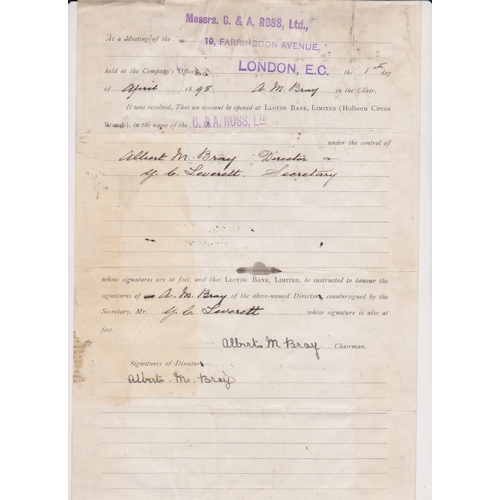 Messrs. C. & A. ROSS, Ltd.,
At a Meeting of the
19, FARRINGDON AVENUE,
held at the Company's Offices LONDON, E.C. the 1st day
of April 1898 A. M Bray in the Chair.
It was resolved, That an account be opened at LLOYDS BANK, LIMITED (Holborn Circus
Branch), in the name of the C. & A. ROSS, LTD
under the control of
Albert M. Bray Director &
Y. C. Leverett Secretary
whose signatures are at foot, and that LLOYDS BANK, LIMITED, be instructed to honour the
signatures of A. M. Bray of the above-named Director countersigned by the
Secretary, Mr. Y. C. Leverett whose signature is also at
foot.
Albert M Bray. Chairman.
Signatures of Director
Albert M. Bray